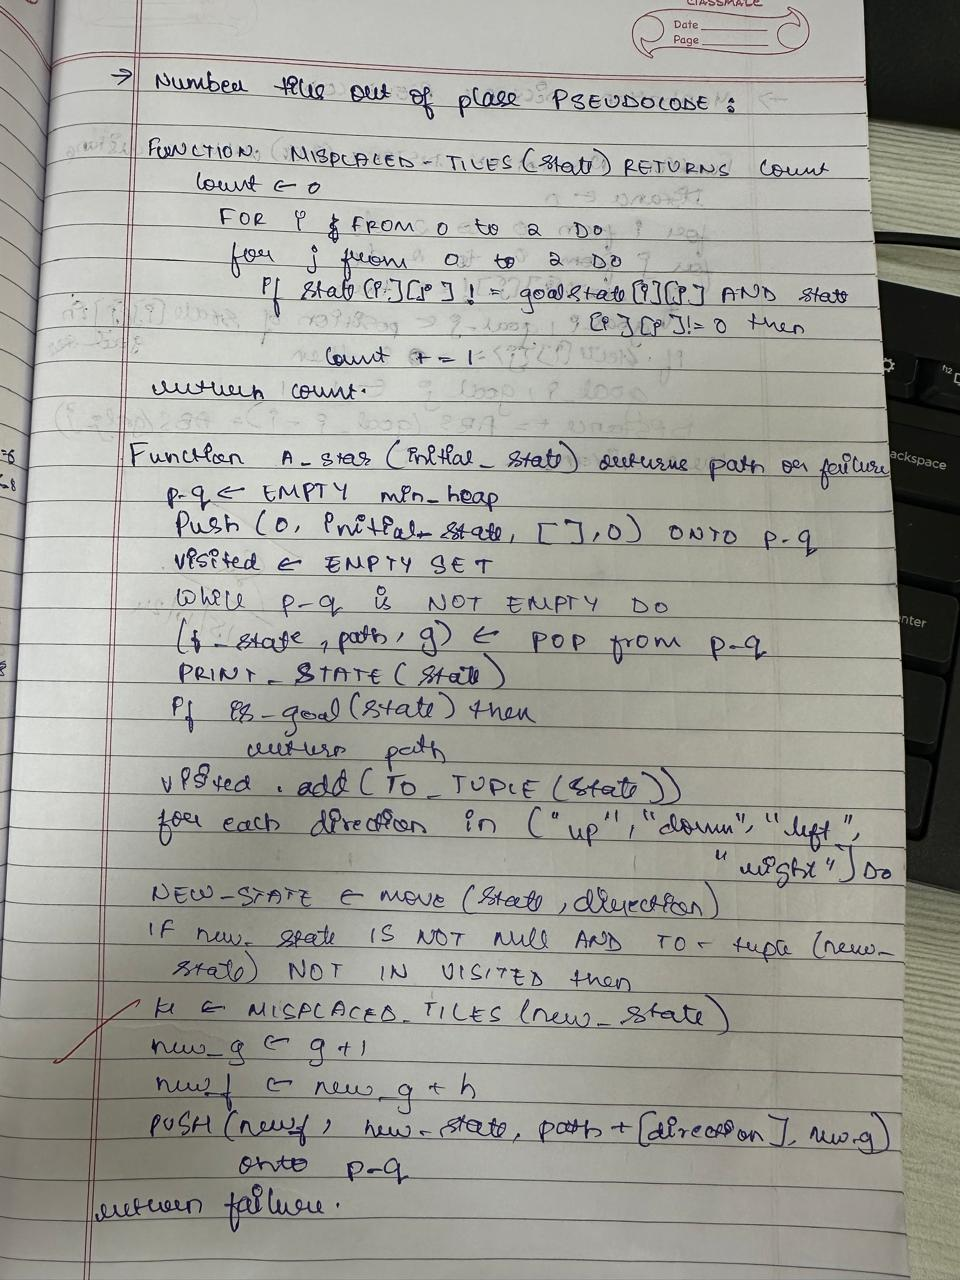 CLASSMATE
Date
Page
→ Number tiles out of place PSEUDOCODE:
FUNCTION MISPLACED-TILES (state) RETURNS count
count ← 0
FOR i FROM 0 to 2 DO
for j from 0 to 2 DO
If state [i][j] != goalstate [i][j] AND state
[i][j] != 0 then
count += 1
return count.
Function A_star (initial_state) returns path or failure
p-q ← EMPTY min_heap
Push (0, initial_state, [ ], 0) ONTO p-q
visited ← EMPTY SET
while p-q is NOT EMPTY DO
(f_state, path, g) ← POP from p-q
PRINT_STATE (state)
If is-goal (state) then
return path
visited . add (TO_TUPLE (state))
for each direction in ("up", "down", "left",
"right"] DO
NEW-STATE ← MOVE (state, direction)
IF new_state IS NOT NULL AND TO-tuple (new-
state) NOT IN VISITED then
H ← MISPLACED_TILES (new_state)
new_g ← g+1
new_f ← new_g + h
PUSH (new_f, new-state, path + [direction], new-g)
onto p-q
return failure.
ackspace
nter